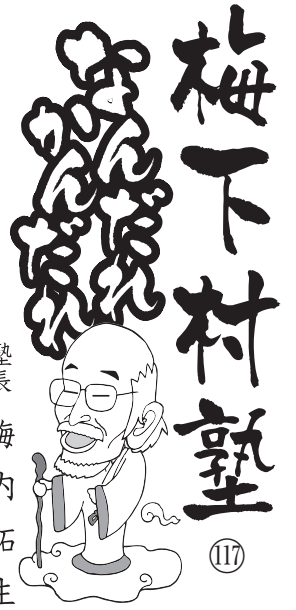 梅下村塾
117
なんだれ
かんだれ
塾長 梅内拓生